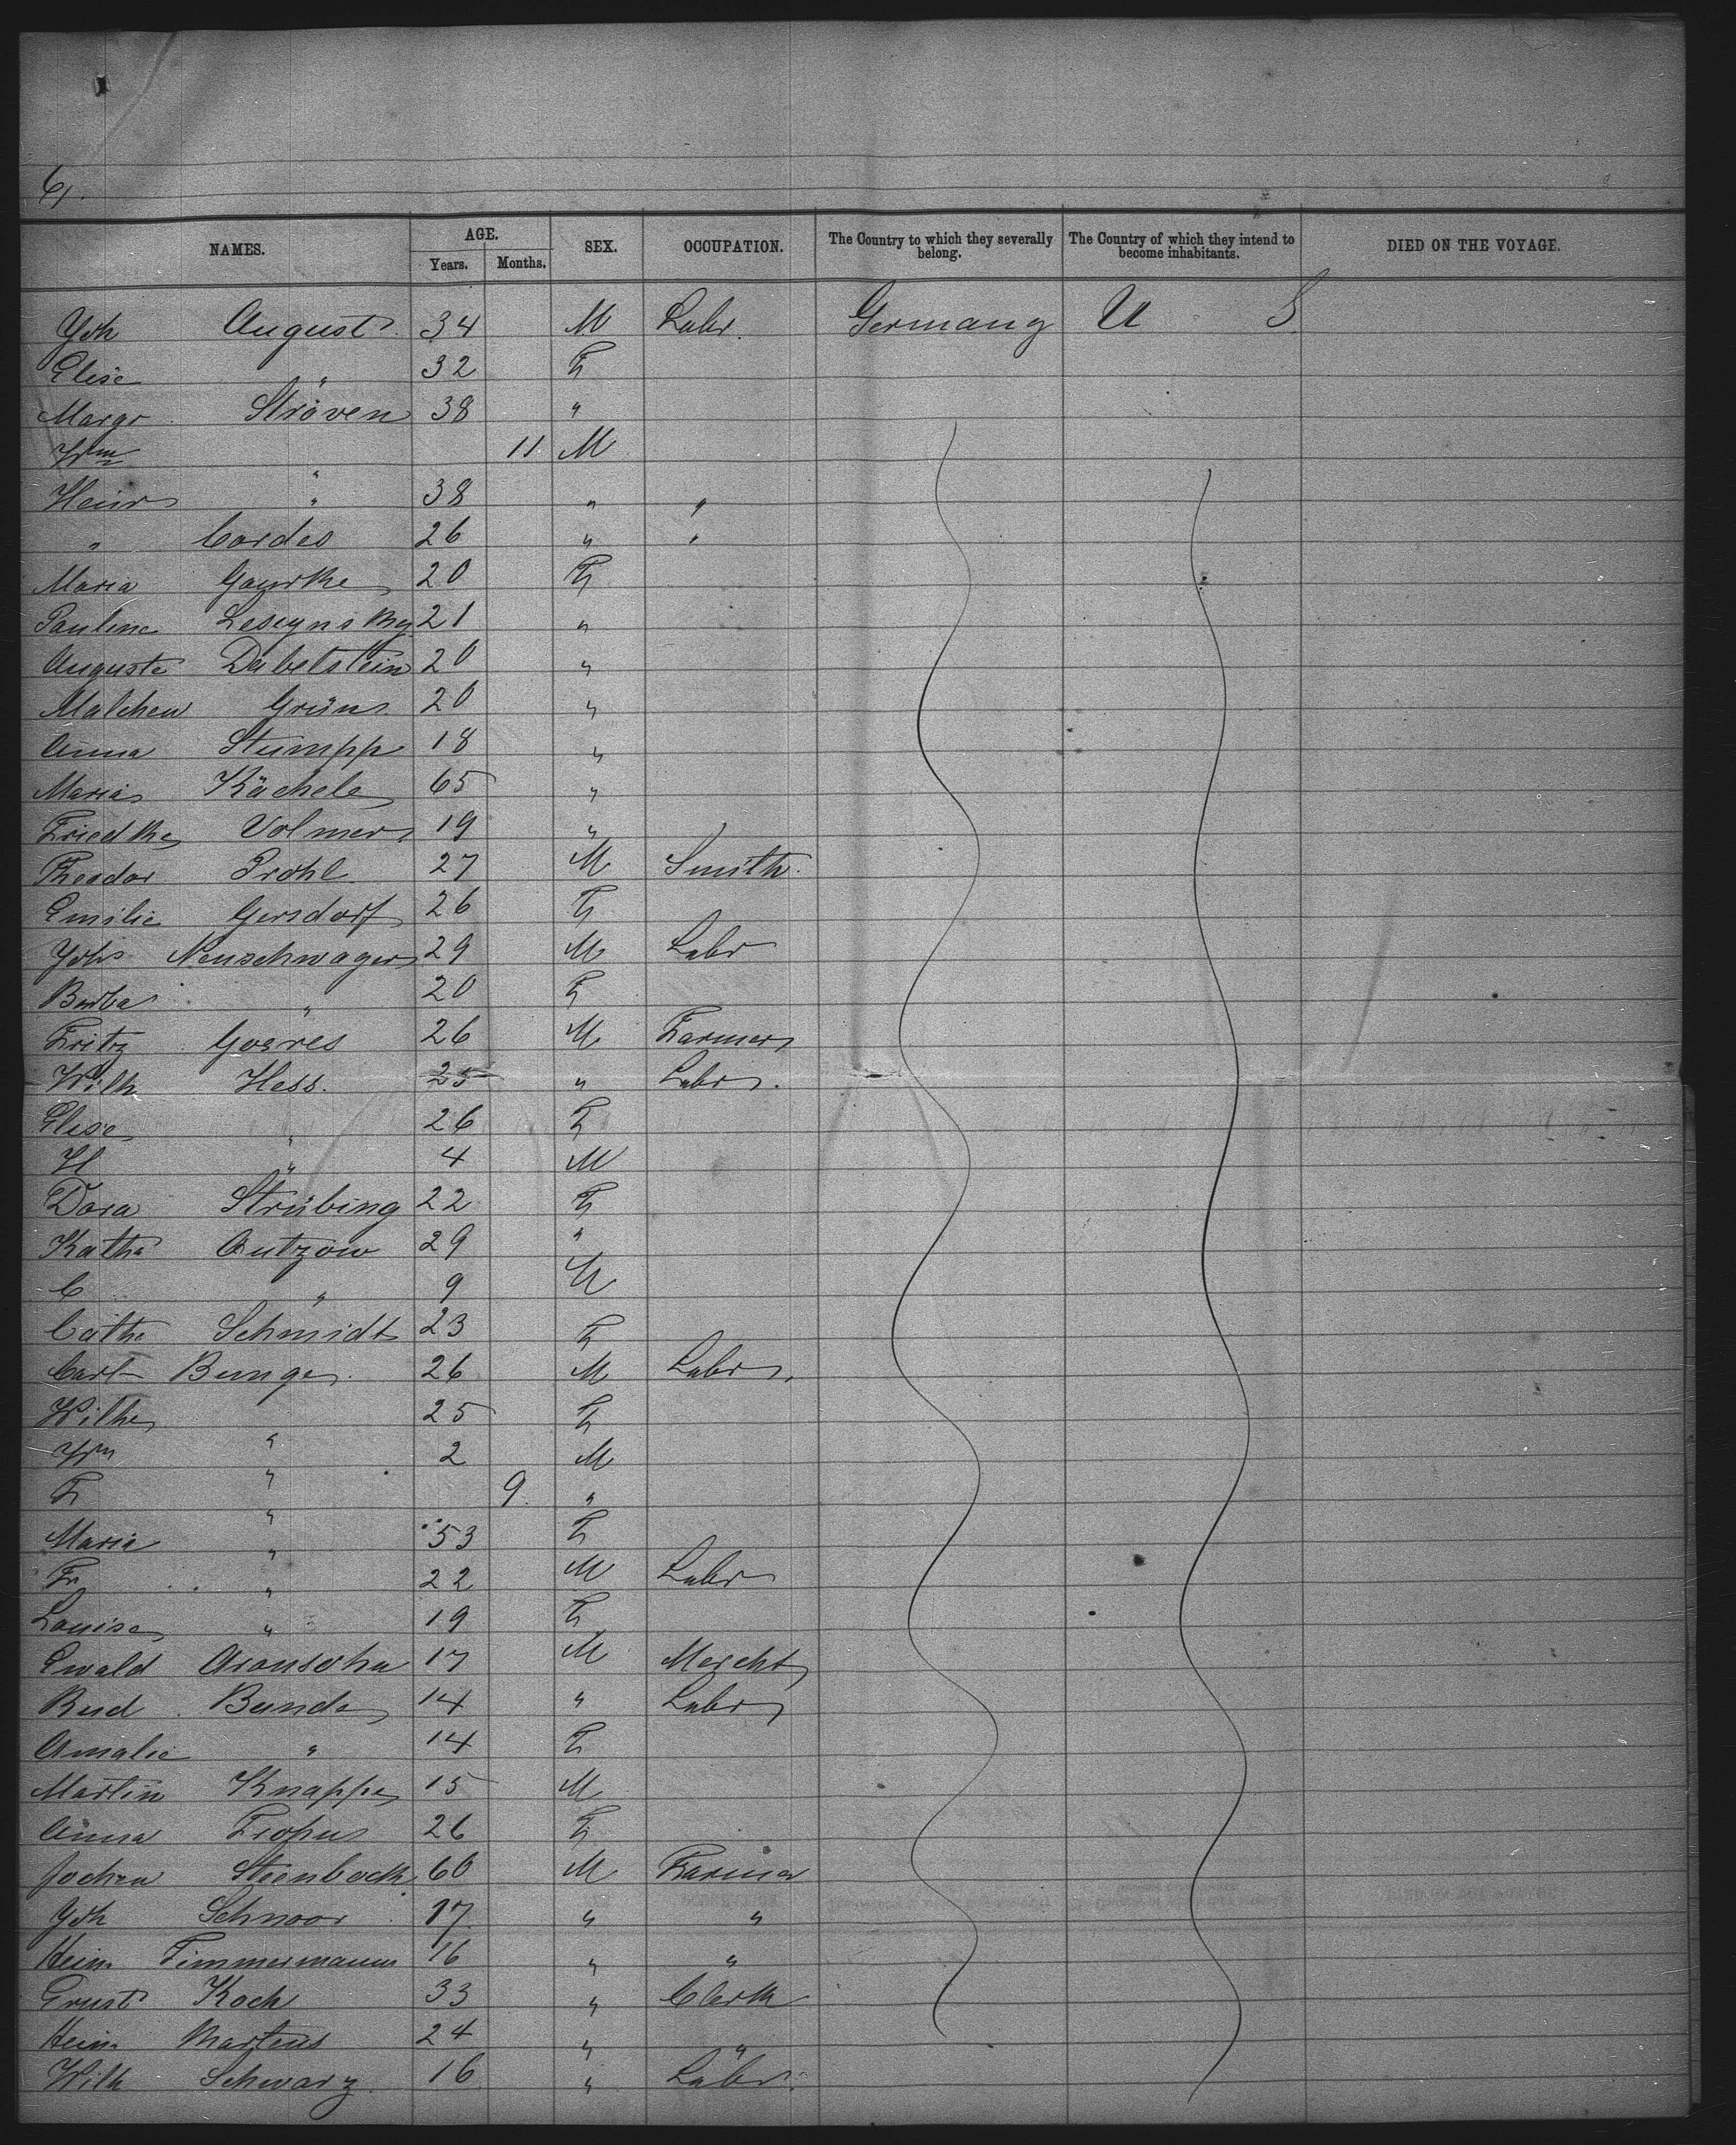 6.
NAMES. AGE. Years. Months. SEX. OCCUPATION. The Country to which they severally belong. The Country of which they intend to become inhabitants. DIED ON THE VOYAGE.
Joh August 34 M Labr. Germany U S
Elise " 32 F
Margr Ströven 38 "
Wm " 11 M
Heinr " 38 " "
" Cordes 26 " "
Maria 20 F
Pauline 21 "
Auguste Dabelstein 20 "
Malchen Grün 20 "
Anna Stumpp 18 "
Maria Kächele 65 "
Friedke Volmer 19 "
Theodor Prohl 27 M Smith
Emilie Gersdorf 26 F
Johs Neuschwager 29 M Labr
Barba " 20 F
Fritz Goeres 26 M Farmer
Wilh Hess. 25 " Labr.
Elise " 26 F
H " 4 M
Dora Strübing 22 F
Katha Autzow 29 "
C " 9 M
Cathe Schmidt 23 F
Carl Bunge 26 M Labr.
Wilhe " 25 F
Wm " 2 M
F " 9 "
Maria " 53 F
Fr " 22 M Labr
Louise " 19 F
Ewald Aronsohn 17 M Mercht
Rud Bunde 14 " Labr
Amalie " 14 F
Martin Knappe 15 M
Anna 26 F
Jochen Steenbock 60 M Farmer
Joh Schnoor 17 " "
Hein Timmermann 16 " "
Ernst Koch 33 " Clerk
Hein Martens 24 " "
Wilh Schwarz 16 " Labr.